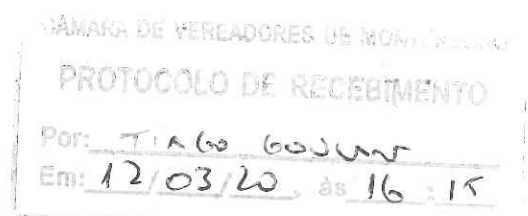 CÂMARA DE VEREADORES DE
PROTOCOLO DE RECEBIMENTO
Por: TIAGO
Em: 12/03/20, às 16:15